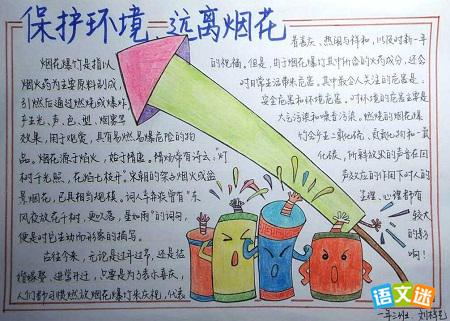 保护环境、远离烟花
烟花爆竹是指以
烟火药为主要原料制成,
引燃后通过燃烧或爆炸
产生光、声、色、型、烟雾等
效果,用于观赏,具有易燃易爆危险的物
品。烟花源于焰火,始于隋唐。隋炀帝有诗云:“灯
树千光照,花焰七枝开”。宋朝的架子烟火或盆
景烟花,已具相当规模。词人辛弃疾曾有“东
风夜放花千树,更吹落,星如雨”的词句,
便是对它生动而形象的描写。
古往今来,无论是过年过节,还是结
婚嫁娶、进学升迁,只要是为了表示喜庆,
人们都习惯燃放烟花爆竹来庆祝,代表
着喜庆、热闹与祥和,以及对新一年
的祝福。但是,由于烟花爆竹其中所含的火药成分,还会
对日常生活带来危害。其中最令人关注的危害是:
安全危害和环境危害。对环境的危害主要是
大气污染和噪音污染。燃烧的烟花爆
竹会产生二氧化硫、氮氧化物和一氧
化碳,所释放出的声音在回
声效应的作用下对人的
生理、心理都有
较大
的影
响!
语文迷
一年三班 刘梓艺